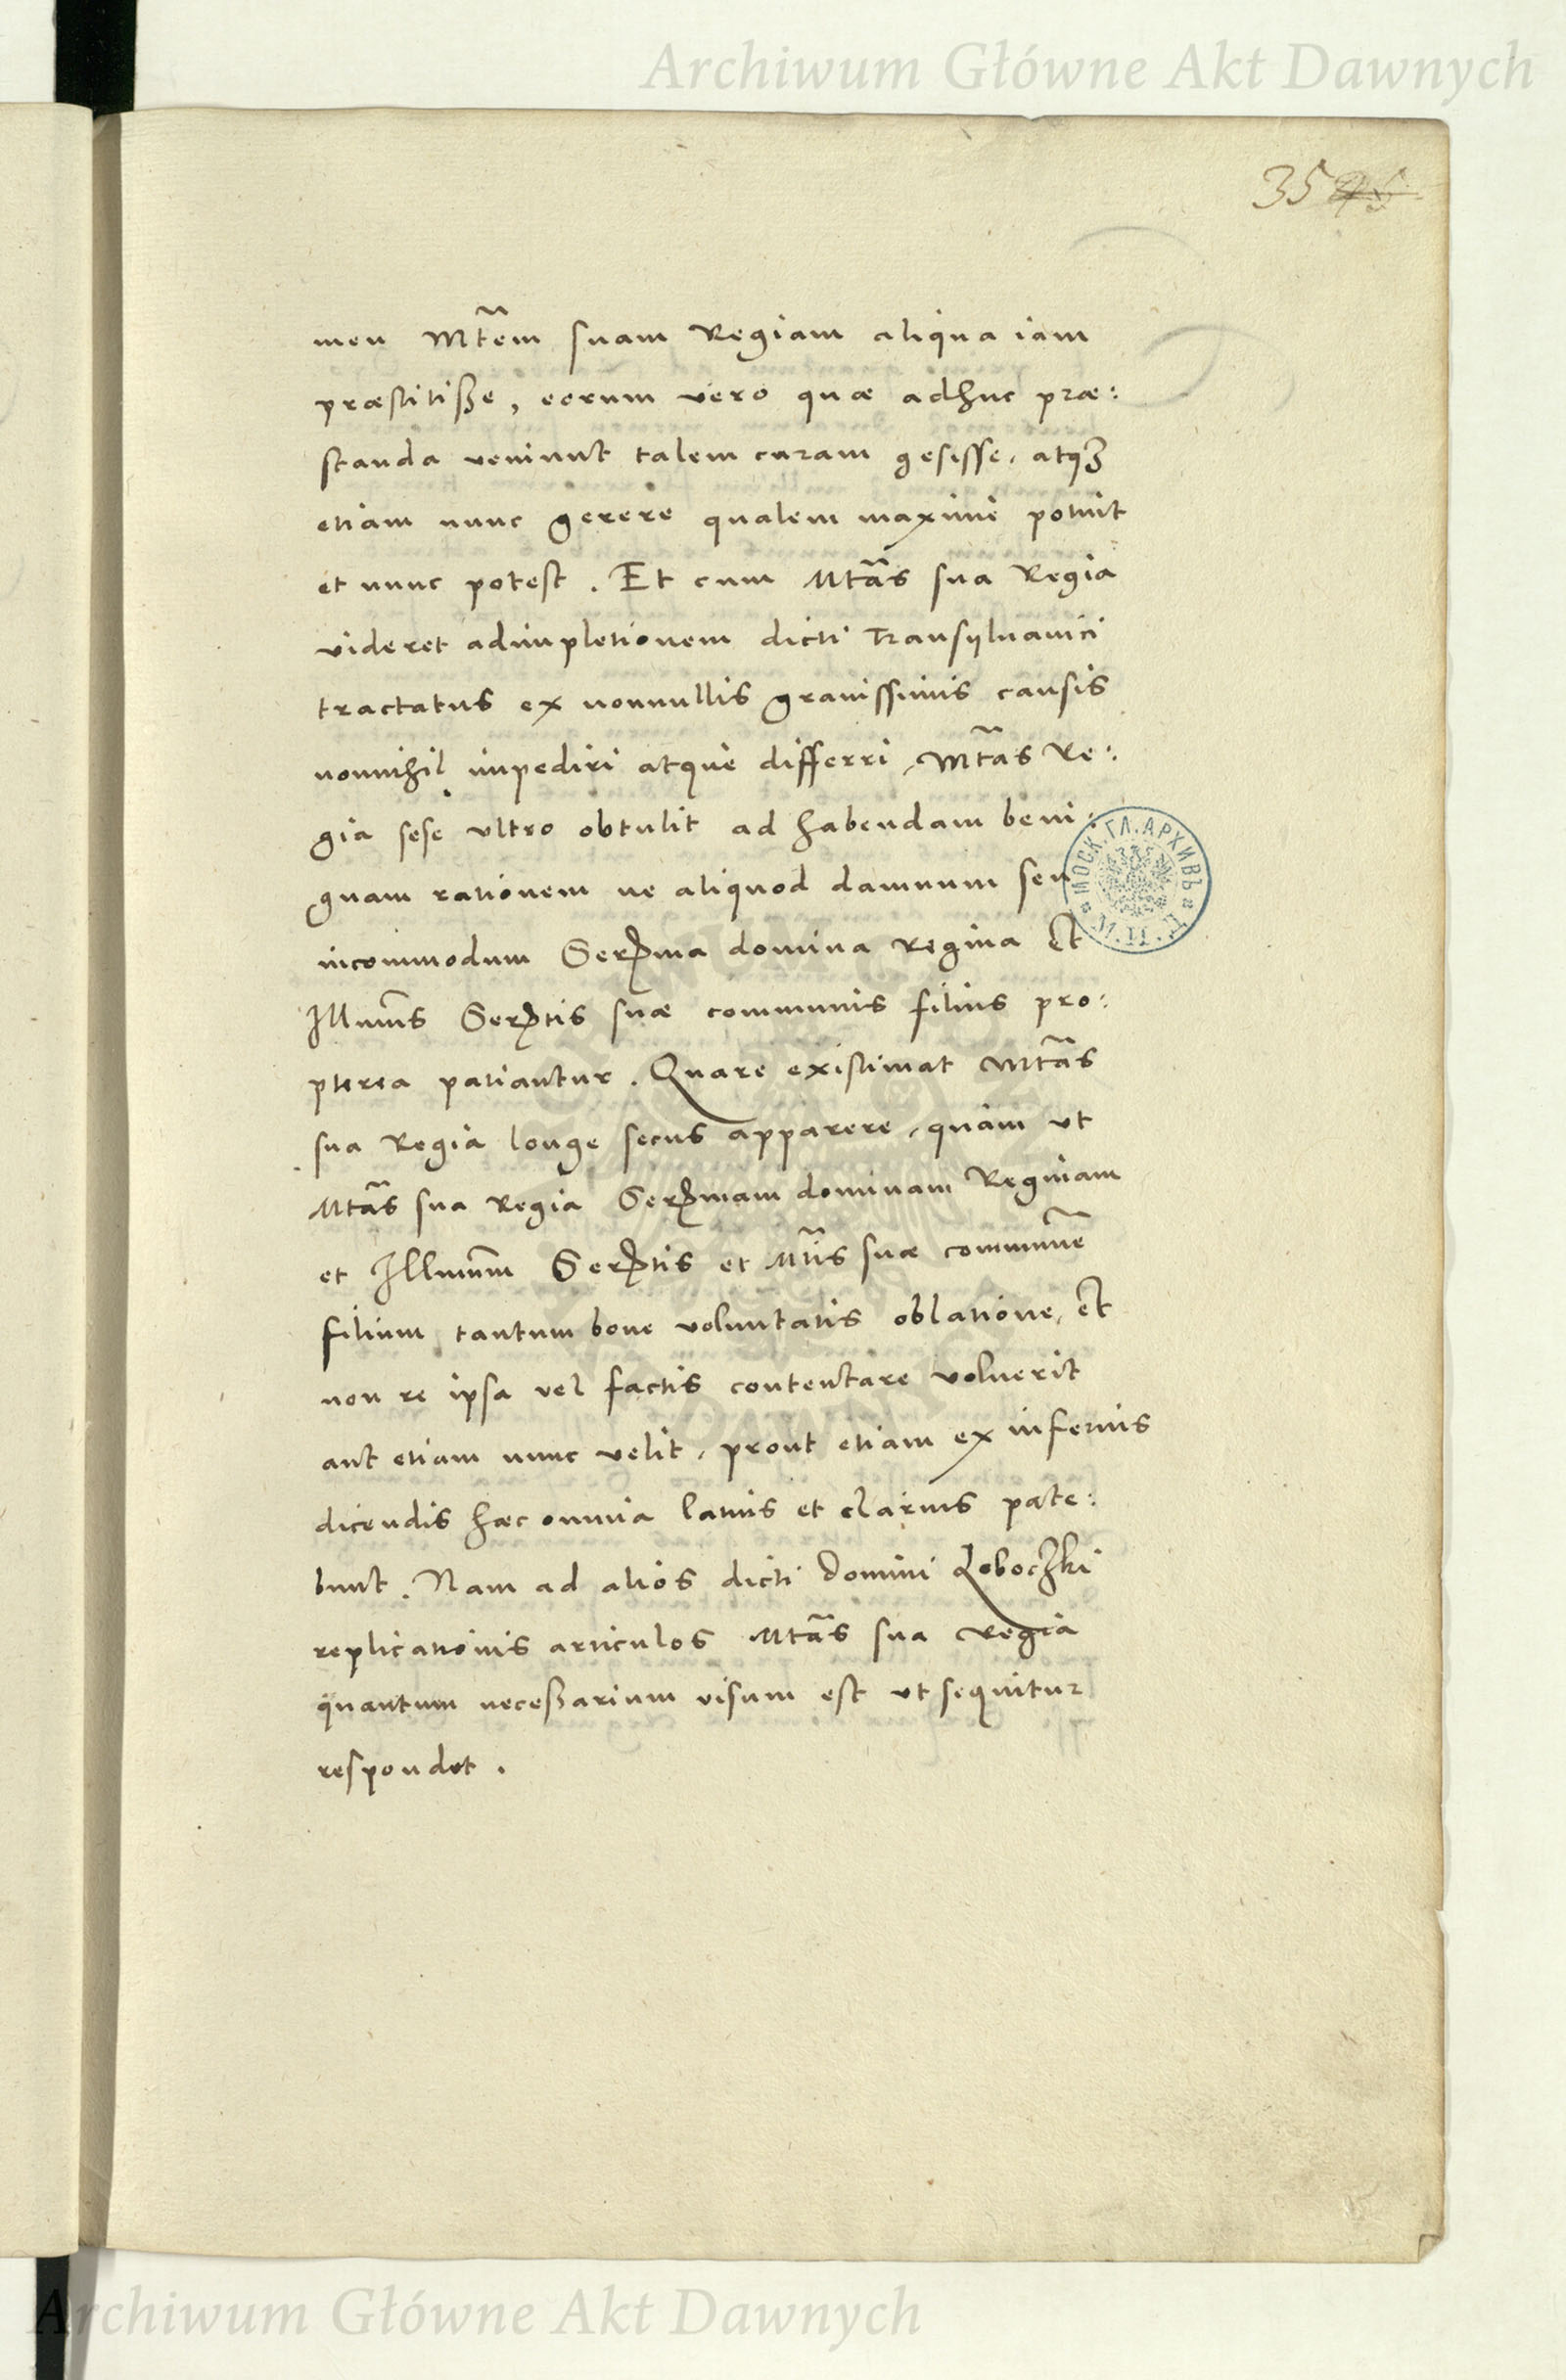 Archiwum Główne Akt Dawnych
35
men Mtẽm suam Regiam aliqua iam
præstitiße, eorum vero quæ adhuc præ:
standa veniunt talem curam gesisse, atqꝫ
etiam nunc gerere qualem maxime potuit
et nunc potest. Et cum Mtãs sua Regia
videret adimpletionem dicti Transyluanici
tractatus ex nonnullis grauissimis causis
nonnihil impediri atque differri, Mtãs Re:
gia sese ultro obtulit ad habendam beni:
gnam rationem ne aliquod damnum seu
incommodum Serma domina Regina et
Illmũs Sertis suæ communis filius pro:
pterea patiantur. Quare existimat Mtãs
sua Regia longe secus apparere, quàm ut
Mtãs sua Regia Sermam dominam Reginam
et Illmũm Sertis et Mtis suæ communẽ
filium tantum bone voluntatis oblatione, et
non re ipsa vel factis contentare voluerit
aut etiam nunc velit, prout etiam ex infernis
dicendis hæc omnia latius et clarius pate:
bunt. Nam ad alios dicti domini Loboczki
replicationis articulos Mtãs sua Regia
quantum neceßarium visum est ut sequitur
respondet.
МОСК. ГЛ. АРХИВЪ М. И. Д.
Archiwum Główne Akt Dawnych